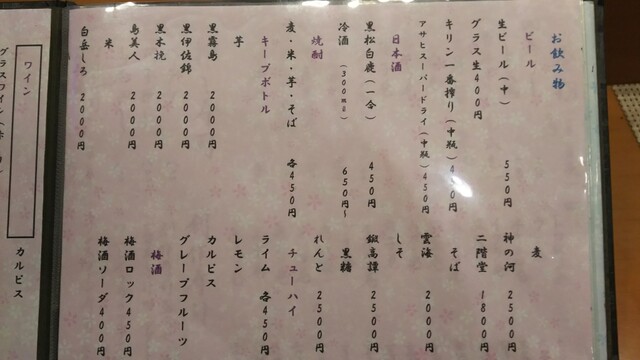 お飲み物
ビール
生ビール(中) 550円
グラス生400円
キリン一番搾り(中瓶)450円
アサヒスーパードライ(中瓶)450円
日本酒
黒松白鹿(一合) 450円
冷酒(300ml) 650円~
焼酎
麦・米・芋・そば 各450円
キープボトル
芋
黒霧島 2000円
黒伊佐錦 2000円
黒木挽 2000円
島美人 2000円
米
白岳しろ 2000円
麦
神の河 2500円
二階堂 1800円
そば
雲海 2000円
しそ
鍛高譚 2500円
黒糖
れんと 2500円
チューハイ
ライム 各450円
レモン
カルピス
グレープフルーツ
梅酒
梅酒ロック450円
梅酒ソーダ400円
ワイン
グラスワイン(赤
カルピス